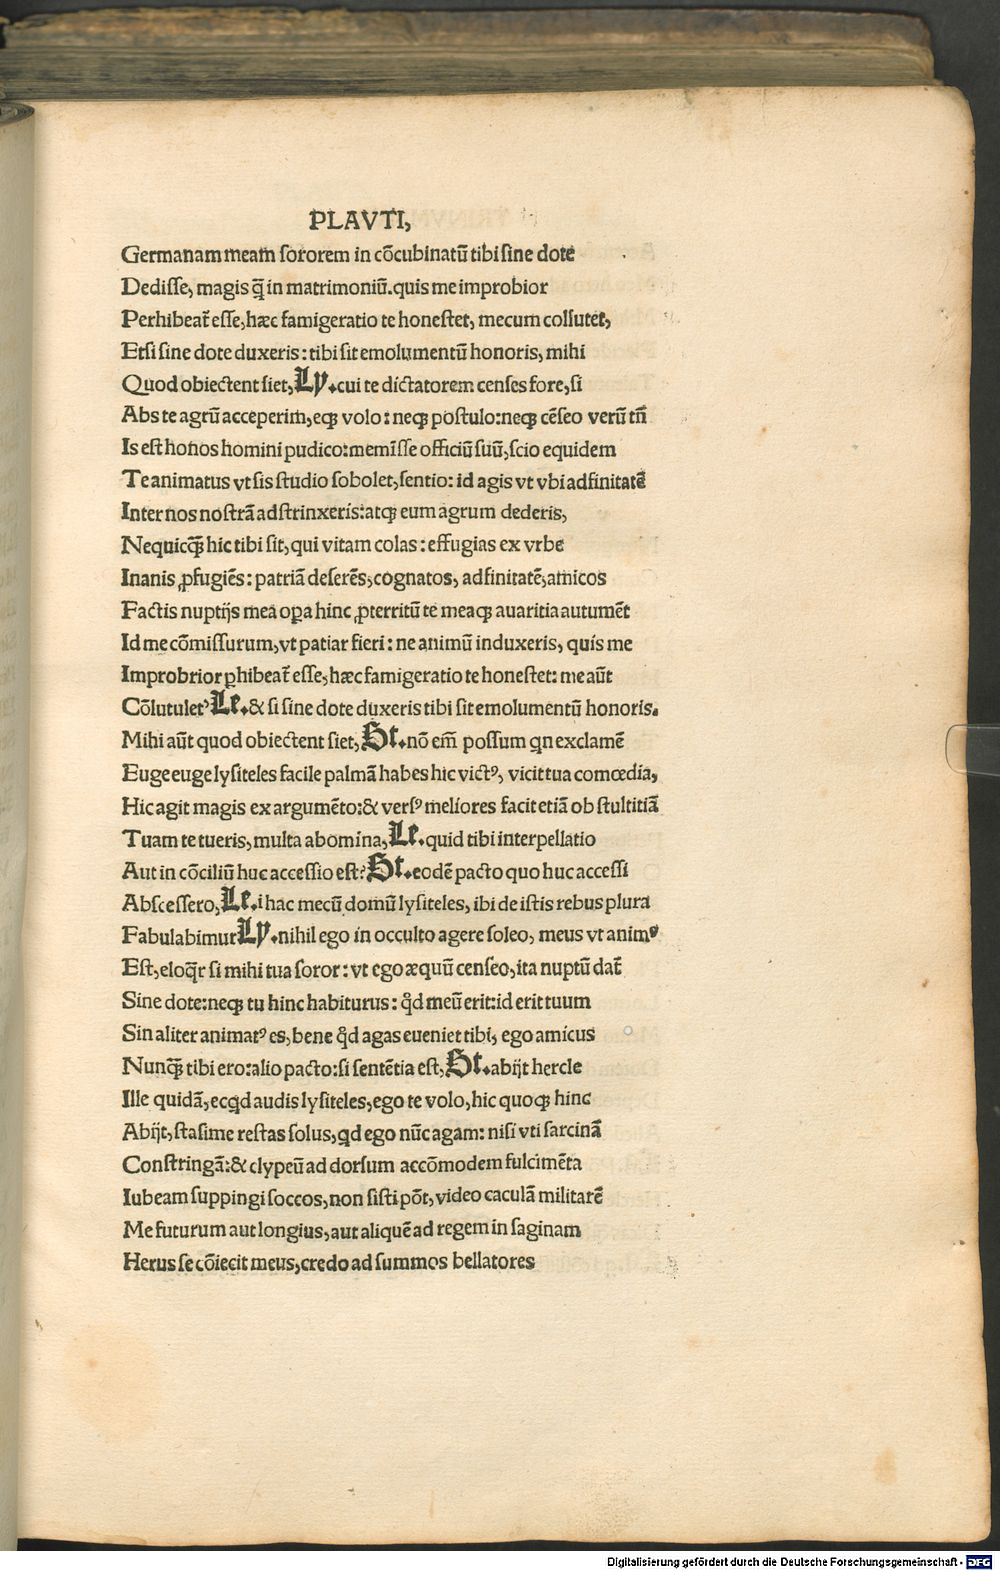 PLAVTI,
Germanam meam sororem in cōcubinatū tibi sine dote
Dedisse, magis q̄ in matrimoniū. quis me improbior
Perhibeat᷑ esse, hæc famigeratio te honestet, mecum collutet,
Etsi sine dote duxeris: tibi sit emolumentū honoris, mihi
Quod obiectent siet, Ly. cui te dictatorem censes fore, si
Abs te agrū acceperim, eqꝫ volo: neqꝫ postulo: neqꝫ cēseo verū tn̄
Is est honos homini pudico: meminisse officiū suū, scio equidem
Te animatus vt sis studio sobolet, sentio: id agis vt vbi adfinitatē
Inter nos nostrā adstrinxeris: atqꝫ eum agrum dederis,
Nequicq̄ hic tibi sit, qui vitam colas: effugias ex vrbe
Inanis ꝓfugiēs: patriā deserēs, cognatos, adfinitatē, amicos
Factis nuptijs mea oꝑa hinc ꝓterritū te meaqꝫ auaritia autumēt
Id me cōmissurum, vt patiar fieri: ne animū induxeris, quis me
Improbrior ꝑhibeat᷑ esse, hæc famigeratio te honestet: me aūt
Cōlutuletꝰ Le. & si sine dote duxeris tibi sit emolumentū honoris.
Mihi aūt quod obiectent siet, St. nō em̄ possum qn exclamē
Euge euge lysiteles facile palmā habes hic victꝰ, vicit tua comœdia,
Hic agit magis ex argumēto: & versꝰ meliores facit etiā ob stultitiā
Tuam te tueris, multa abomina, Le. quid tibi interpellatio
Aut in cōciliū huc accessio est? St. eodē pacto quo huc accessi
Abscessero, Le. i hac mecū domū lysiteles, ibi de istis rebus plura
Fabulabimur Ly. nihil ego in occulto agere soleo, meus vt animꝰ
Est, eloq̄r si mihi tua soror: vt ego æquū censeo, ita nuptū dat᷑
Sine dote: neqꝫ tu hinc habiturus: qd meū erit: id erit tuum
Sin aliter animatꝰ es, bene qd agas eueniet tibi, ego amicus
Nunq̄ tibi ero: alio pacto: si sentētia est, St. abijt hercle
Ille quidā, ecqd audis lysiteles, ego te volo, hic quoqꝫ hinc
Abijt, stasime restas solus, qd ego nūc agam: nisi vti sarcinā
Constringā: & clypeū ad dorsum accōmodem fulcimēta
Iubeam suppingi soccos, non sisti pōt, video caculā militarē
Me futurum aut longius, aut aliquē ad regem in saginam
Herus se cōiecit meus, credo ad summos bellatores
Digitalisierung gefördert durch die Deutsche Forschungsgemeinschaft - DFG